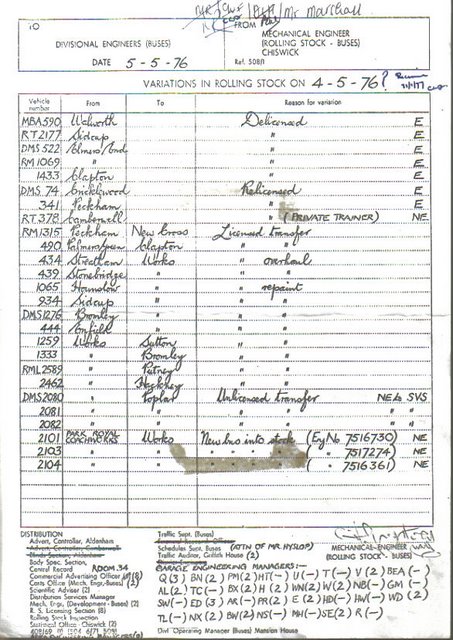 TO
FROM
DIVISIONAL ENGINEERS (BUSES)
MECHANICAL ENGINEER
(ROLLING STOCK - BUSES)
CHISWICK
DATE 5-5-76
Ref. 508/1
VARIATIONS IN ROLLING STOCK ON 4-5-76?
Vehicle number From To Reason for variation
MBA590 Walworth Delicensed E
RT2177 Sidcup " E
DMS522 Elmers End " E
RM1069 " " E
1433 Clapton " E
DMS 74 Cricklewood Relicensed E
341 Peckham " E
RT.378 Camberwell " (PRIVATE TRAINER) NE
RM1315 Peckham New Cross Licensed transfer
490 Palmers Green Clapton " "
434 Streatham Works " overhaul
439 Stonebridge " " "
1065 Hounslow " " repaint
934 Sidcup " " "
DMS1276 Bromley " " "
444 Enfield " " "
1259 Works Sutton " "
1333 " Bromley " "
RML2589 " Putney " "
2462 " Hackney " "
DMS2080 " Poplar Unlicensed transfer NEW SVS
2081 " " " " " "
2082 " " " " " "
2101 PARK ROYAL COACHWORKS Works New bus into stock (Eng No 7516730) NE
2103 " " " " " " ( " 7517274) NE
2104 " " " " " " ( " 7516361) NE
DISTRIBUTION
Advert. Controller, Aldenham
Body Spec. Section,
Central Record ROOM.34
Commercial Advertising Officer
Costs Office (Mech. Engr.-Buses) (2)
Scientific Adviser (2)
Distribution Services Manager
Mech. Engr. (Development - Buses) (2)
R. & S. Licensing Section (8)
Rolling Stock Inspection
Statistical Office, Chiswick (2)
Traffic Supt. (Buses)
Schedules Supt. Buses (ATTN OF MR HYSLOP)
Traffic Auditor, Griffith House (2)
MECHANICAL ENGINEER
(ROLLING STOCK - BUSES)
GARAGE ENGINEERING MANAGERS:-
Q(3) BN(2) PM(2) HT(-) U(-) T(-) V(2) BEA(-)
AL(2) TC(-) BX(2) H(2) WN(2) W(2) NB(-) GM(-)
SW(-) ED(3) AR(-) PR(2) E(2) HD(-) HW(-) WD(2)
TL(-) NX(2) BW(2) NS(-) MH(-) SE(2) R(-)
Divl Operating Manager (Buses) Mansion House